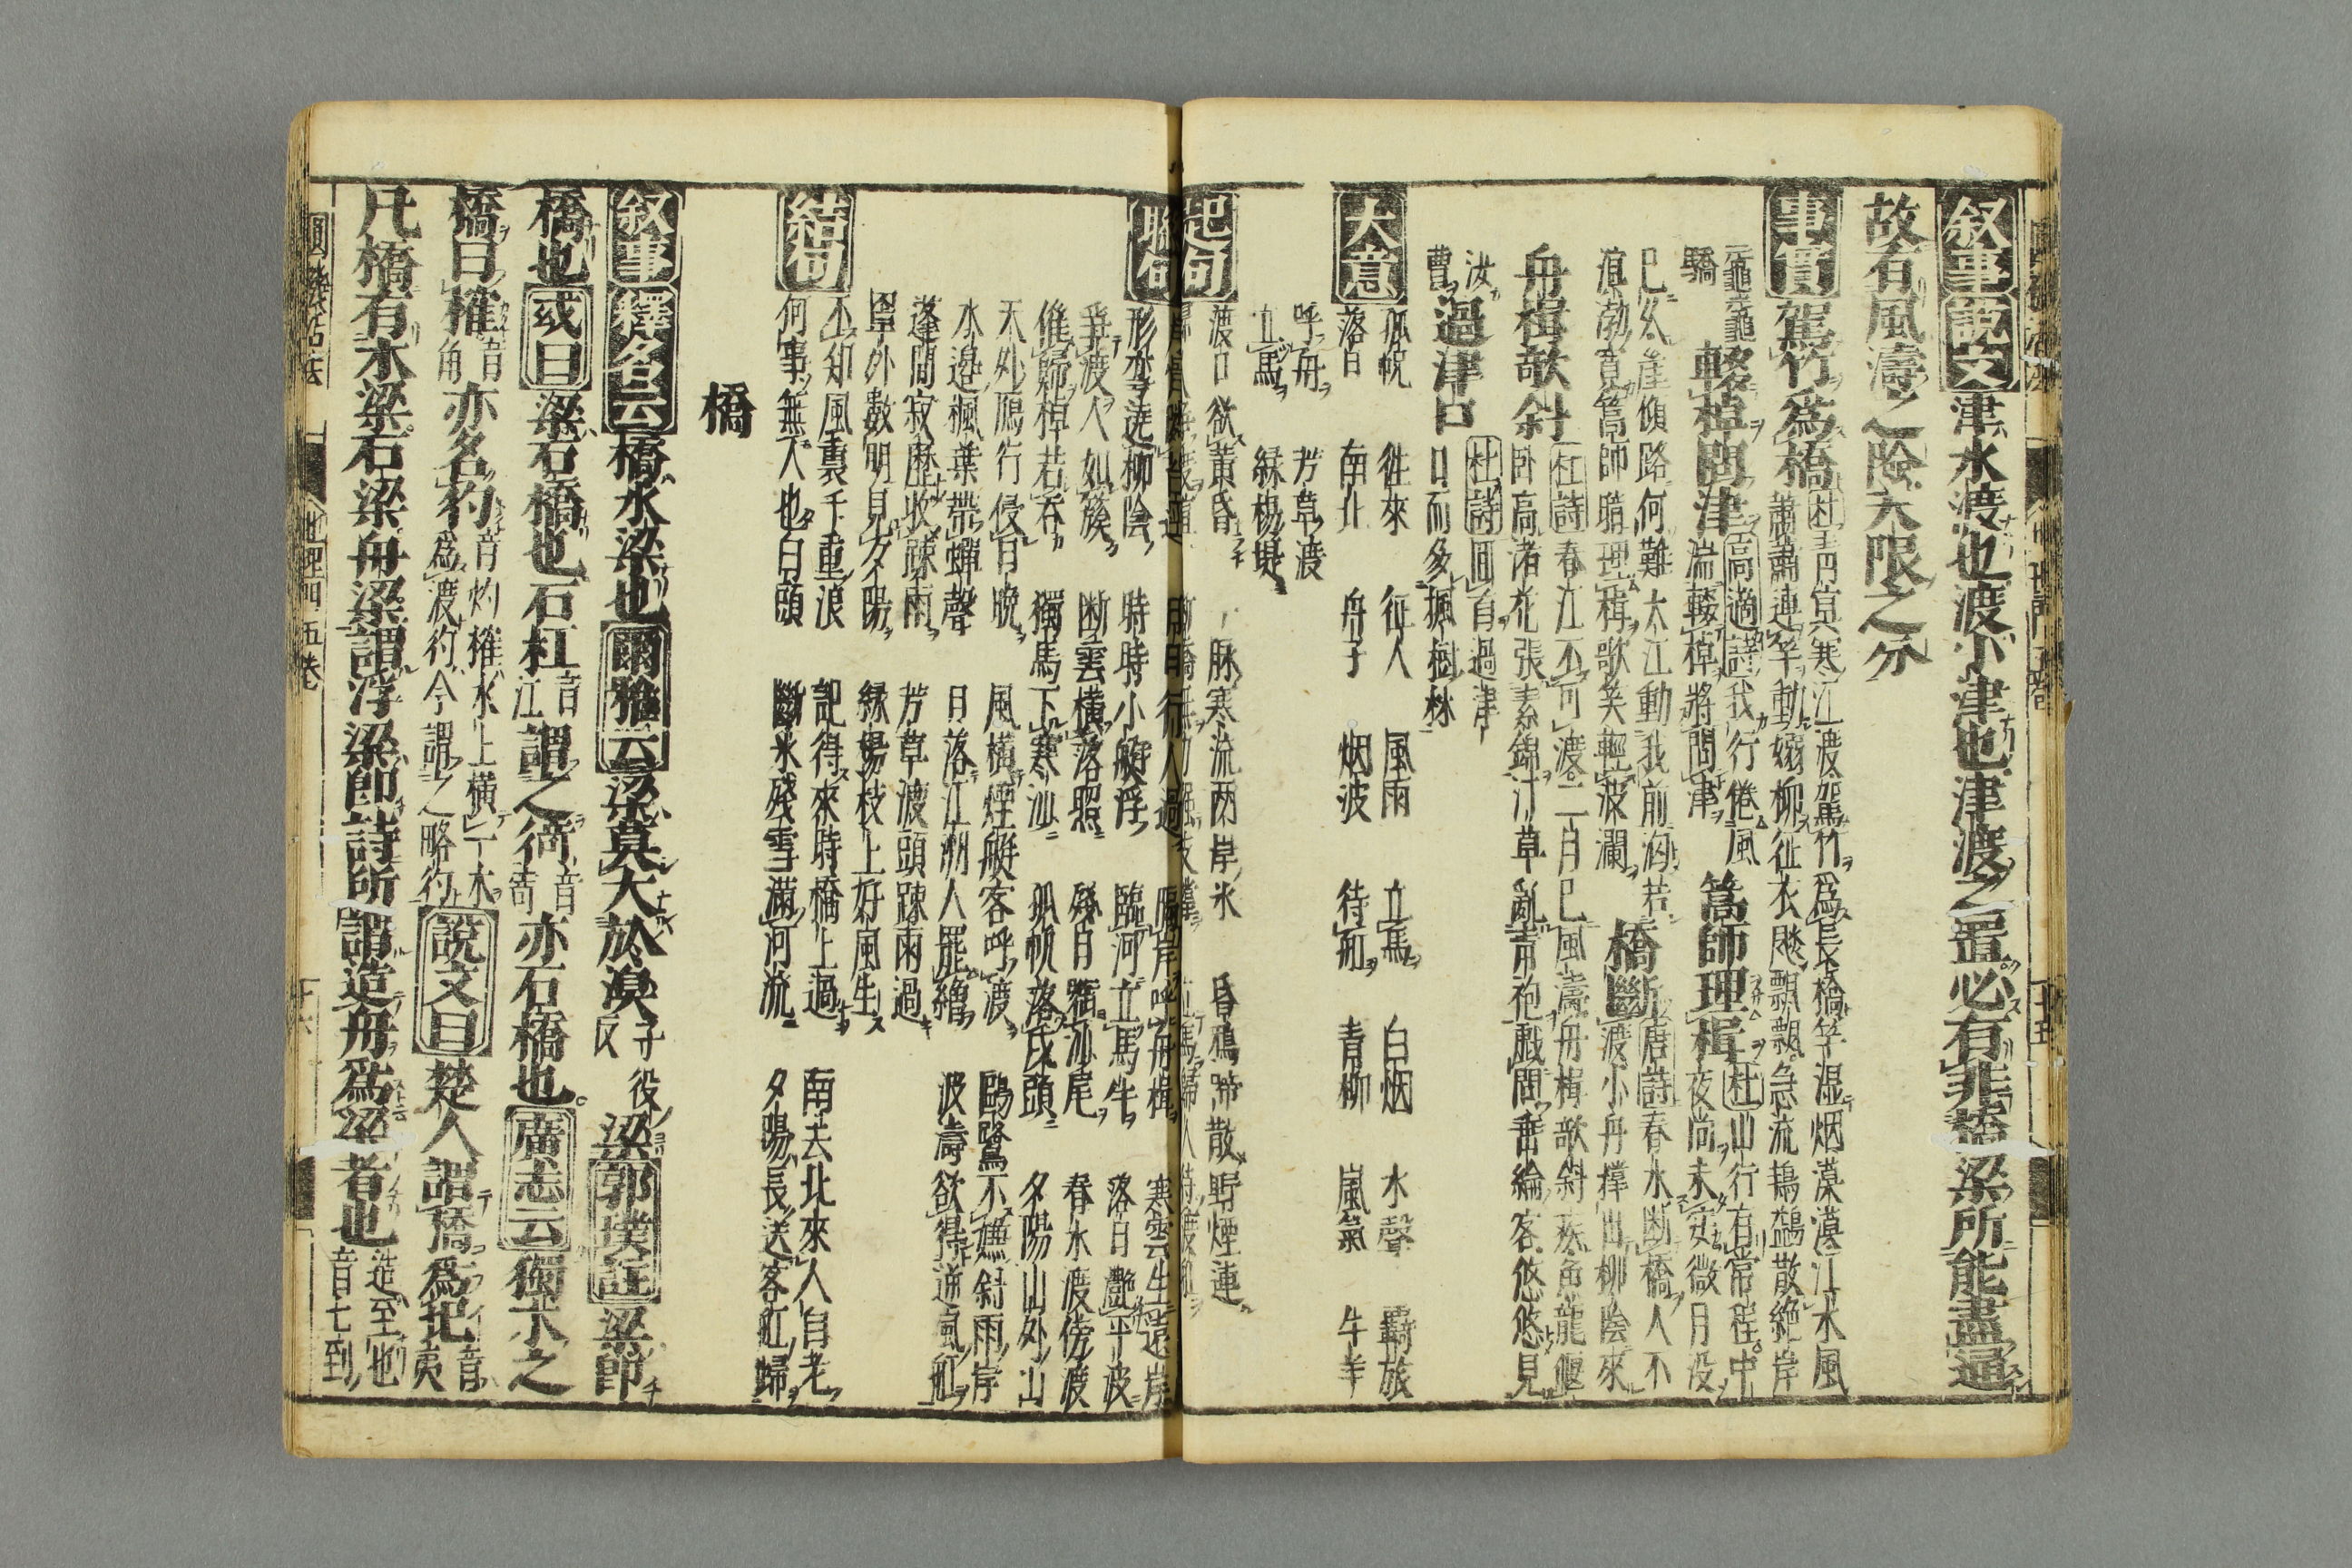 叙事說文津水渡也渡小津也津渡之置必有非橋梁所能盡通
故有風濤之險天限之分
事實駕竹爲橋杜青冥寒江渡駕竹爲長橋竿湿烟漠漠江水風
蕭蕭連笮動嫋柳征衣颭飄飄急流鴇鷁散絶岸
黿鼉
驕
輟棹問津高適詩我行倦風
湍輟棹將問津
篙師理楫杜山行有常程中
夜尚未安微月没
已久崖傾路何難大江動我前洶若
溟渤寛篙師暗理楫歌笑輕波瀾
橋斷唐詩春水断橋人不
渡小舟撑出柳陰來
舟楫欹斜杜詩春江不可渡二月已風濤舟楫欹斜疾魚龍偃
卧高渚花張素錦汀草亂青袍戲問垂綸客悠悠見
汝
曹
過津口杜詩囬首過津
口而多楓樹林
大意
孤帆 徃來 征人 風雨 立馬 白烟 水聲 覊旅
落日 南北 舟子 烟波 待舡 青柳 嵐氣 牛羊
呼舟 芳草渡
立馬 緑楊堤
起句
渡口欲黄昏
寒流両岸氷 昏鴉啼散 野煙連
聮句
隔岸呼舟楫 寒雲生遠岸
形孥遶柳陰 時時小艇浮 臨河立馬牛 落日艶平波
爭渡人如簇 断雲橫落照 殘白 尾 春水渡傍渡
催歸棹若吞 獨馬下寒汕 孤帆落戍頭 夕陽山外山
天外鴈行侵日晚 風橫煙艇客呼渡 鷗鷺不嫌斜雨岸
水邉楓葉帶蟬聲 日落江洲人罷繒 波濤欲得逆風舡
蓬間寂歴收踈雨 芳草渡頭踈雨過
罩外數明見夕陽 緑楊枝上好風生
結句
不知風裏千重浪 記得來時橋上過 南去北來人自老
何事無人也白頭 斷氷殘雪滿河流 夕陽長送客舡歸
橋
叙事釋名云橋水梁也爾雅云梁莫大於湨子役
反
梁郭璞註梁即
橋也或曰梁石橋也石杠音
江
謂之徛音
苛
亦石橋也廣志云獨木之
橋曰榷音
角
亦名彴音灼榷水上橫一木
爲渡彴今謂之略彴
說文曰楚人謂橋爲圯音
夷
凡橋有木梁石梁舟梁謂浮梁即詩所謂造舟爲梁者也造至也
音七到
圓機活法 地理門五巻 十六